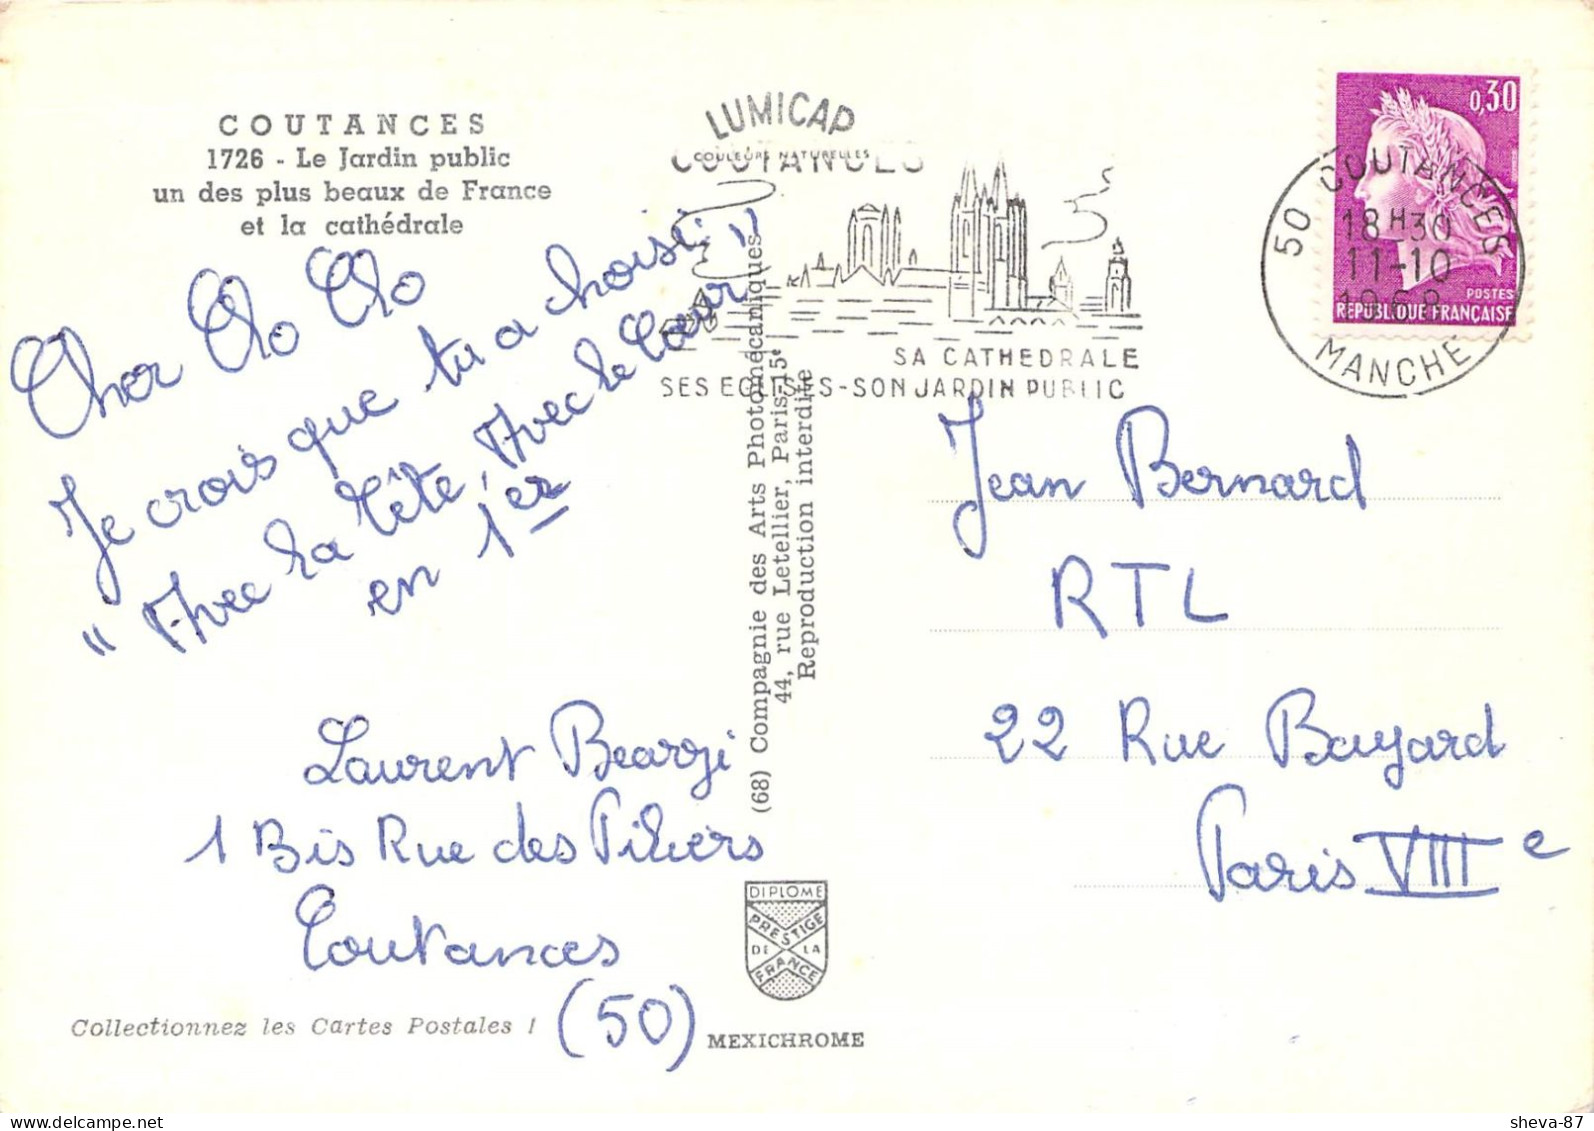 COUTANCES
1726 - Le Jardin public
un des plus beaux de France
et la cathédrale
LUMICAP
COULEURS NATURELLES
COUTANCES
SA CATHEDRALE
SES EGLISES-SON JARDIN PUBLIC
0,30
POSTES
REPUBLIQUE FRANÇAISE
50 COUTANCES
18H30
11-10
1968
MANCHE
Cher Clo Clo
Je crois que tu a choisi:
" Avec la Tête, Avec le Cœur "
en 1er
Laurent Bearzi
1 Bis Rue des Piliers
Coutances
(50)
Collectionnez les Cartes Postales !
(68) Compagnie des Arts Photomécaniques
44, rue Letellier, Paris-15e
Reproduction interdite
DIPLOME
PRESTIGE
DE LA
FRANCE
MEXICHROME
Jean Bernard
RTL
22 Rue Bayard
Paris VIIIe
sheva-87